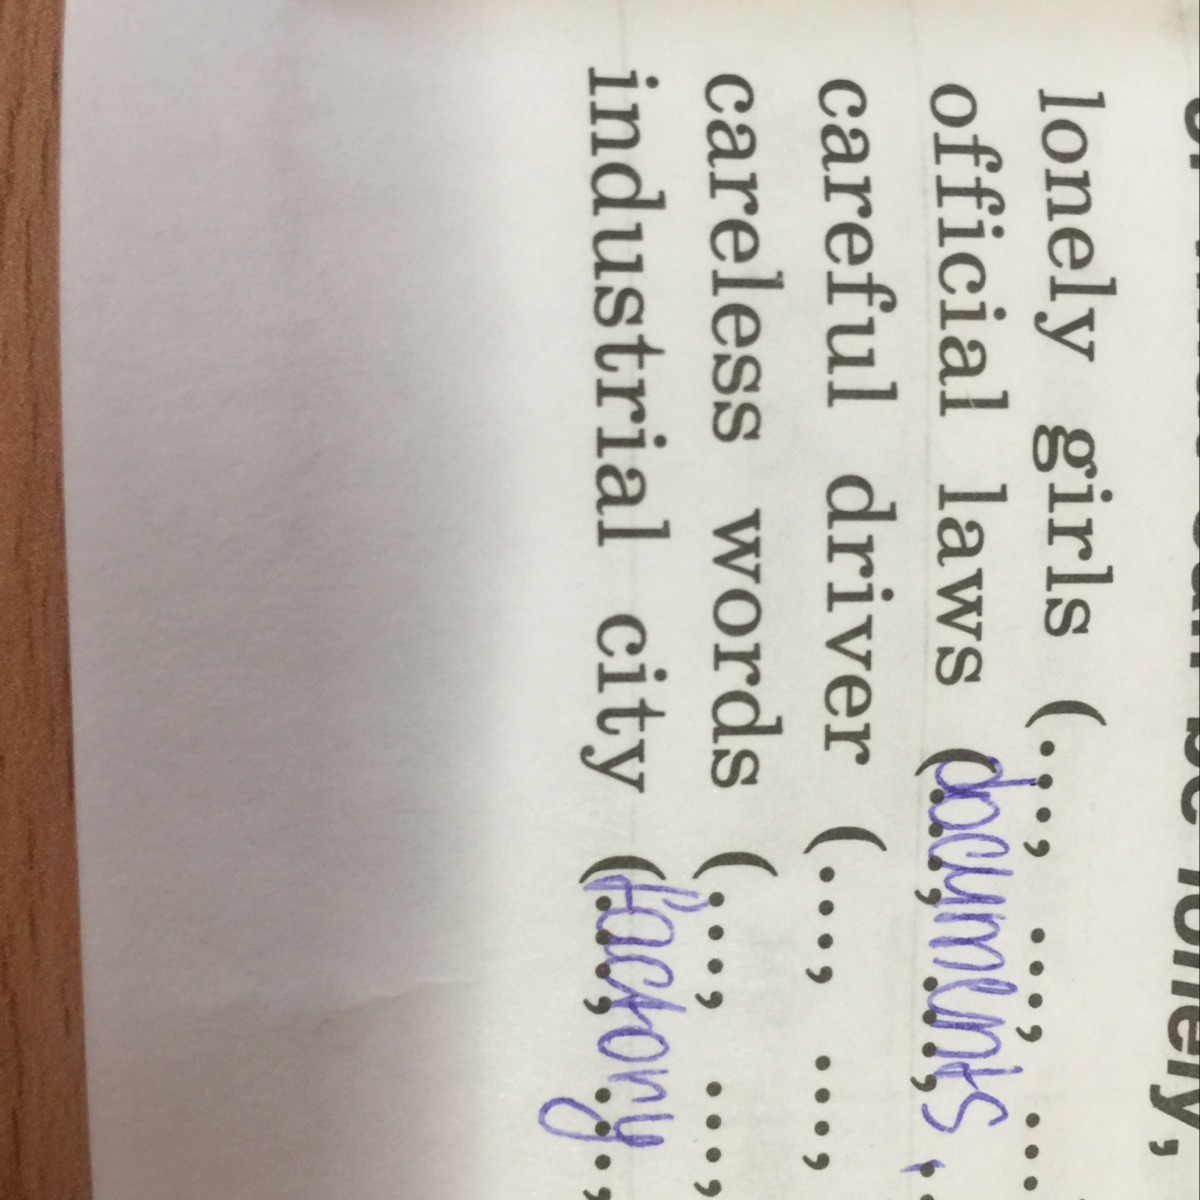 be lonely,
lonely girls (..., ..., ...
official laws (documents,
careful driver (..., ...,
careless words (..., ...,
industrial city (factory